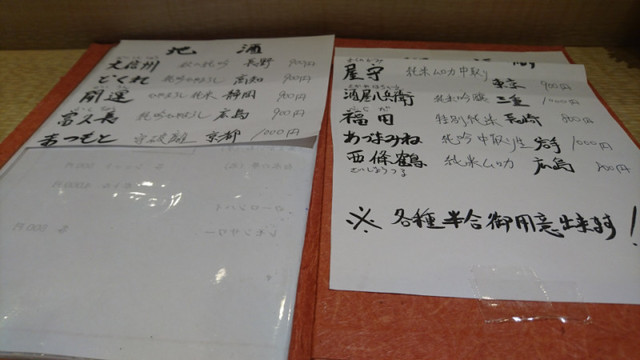 地酒
大信州 純吟 長野 900円
どくれ 純吟ひやおろし 高知 900円
開運 ひやおろし 純米 静岡 900円
富久長 純吟ひやおろし 広島 900円
あつもと 京都 1000円
屋守 純米ムロカ中取り 東京 900円
酒屋八兵衛 純米吟醸 三重 1000円
福田 特別純米 長崎 800円
あづまみね 純吟中取り生 岩手 1000円
西條鶴 純米ムロカ 広島 900円
さいじょうつる
※各種半合御用意出来ます!